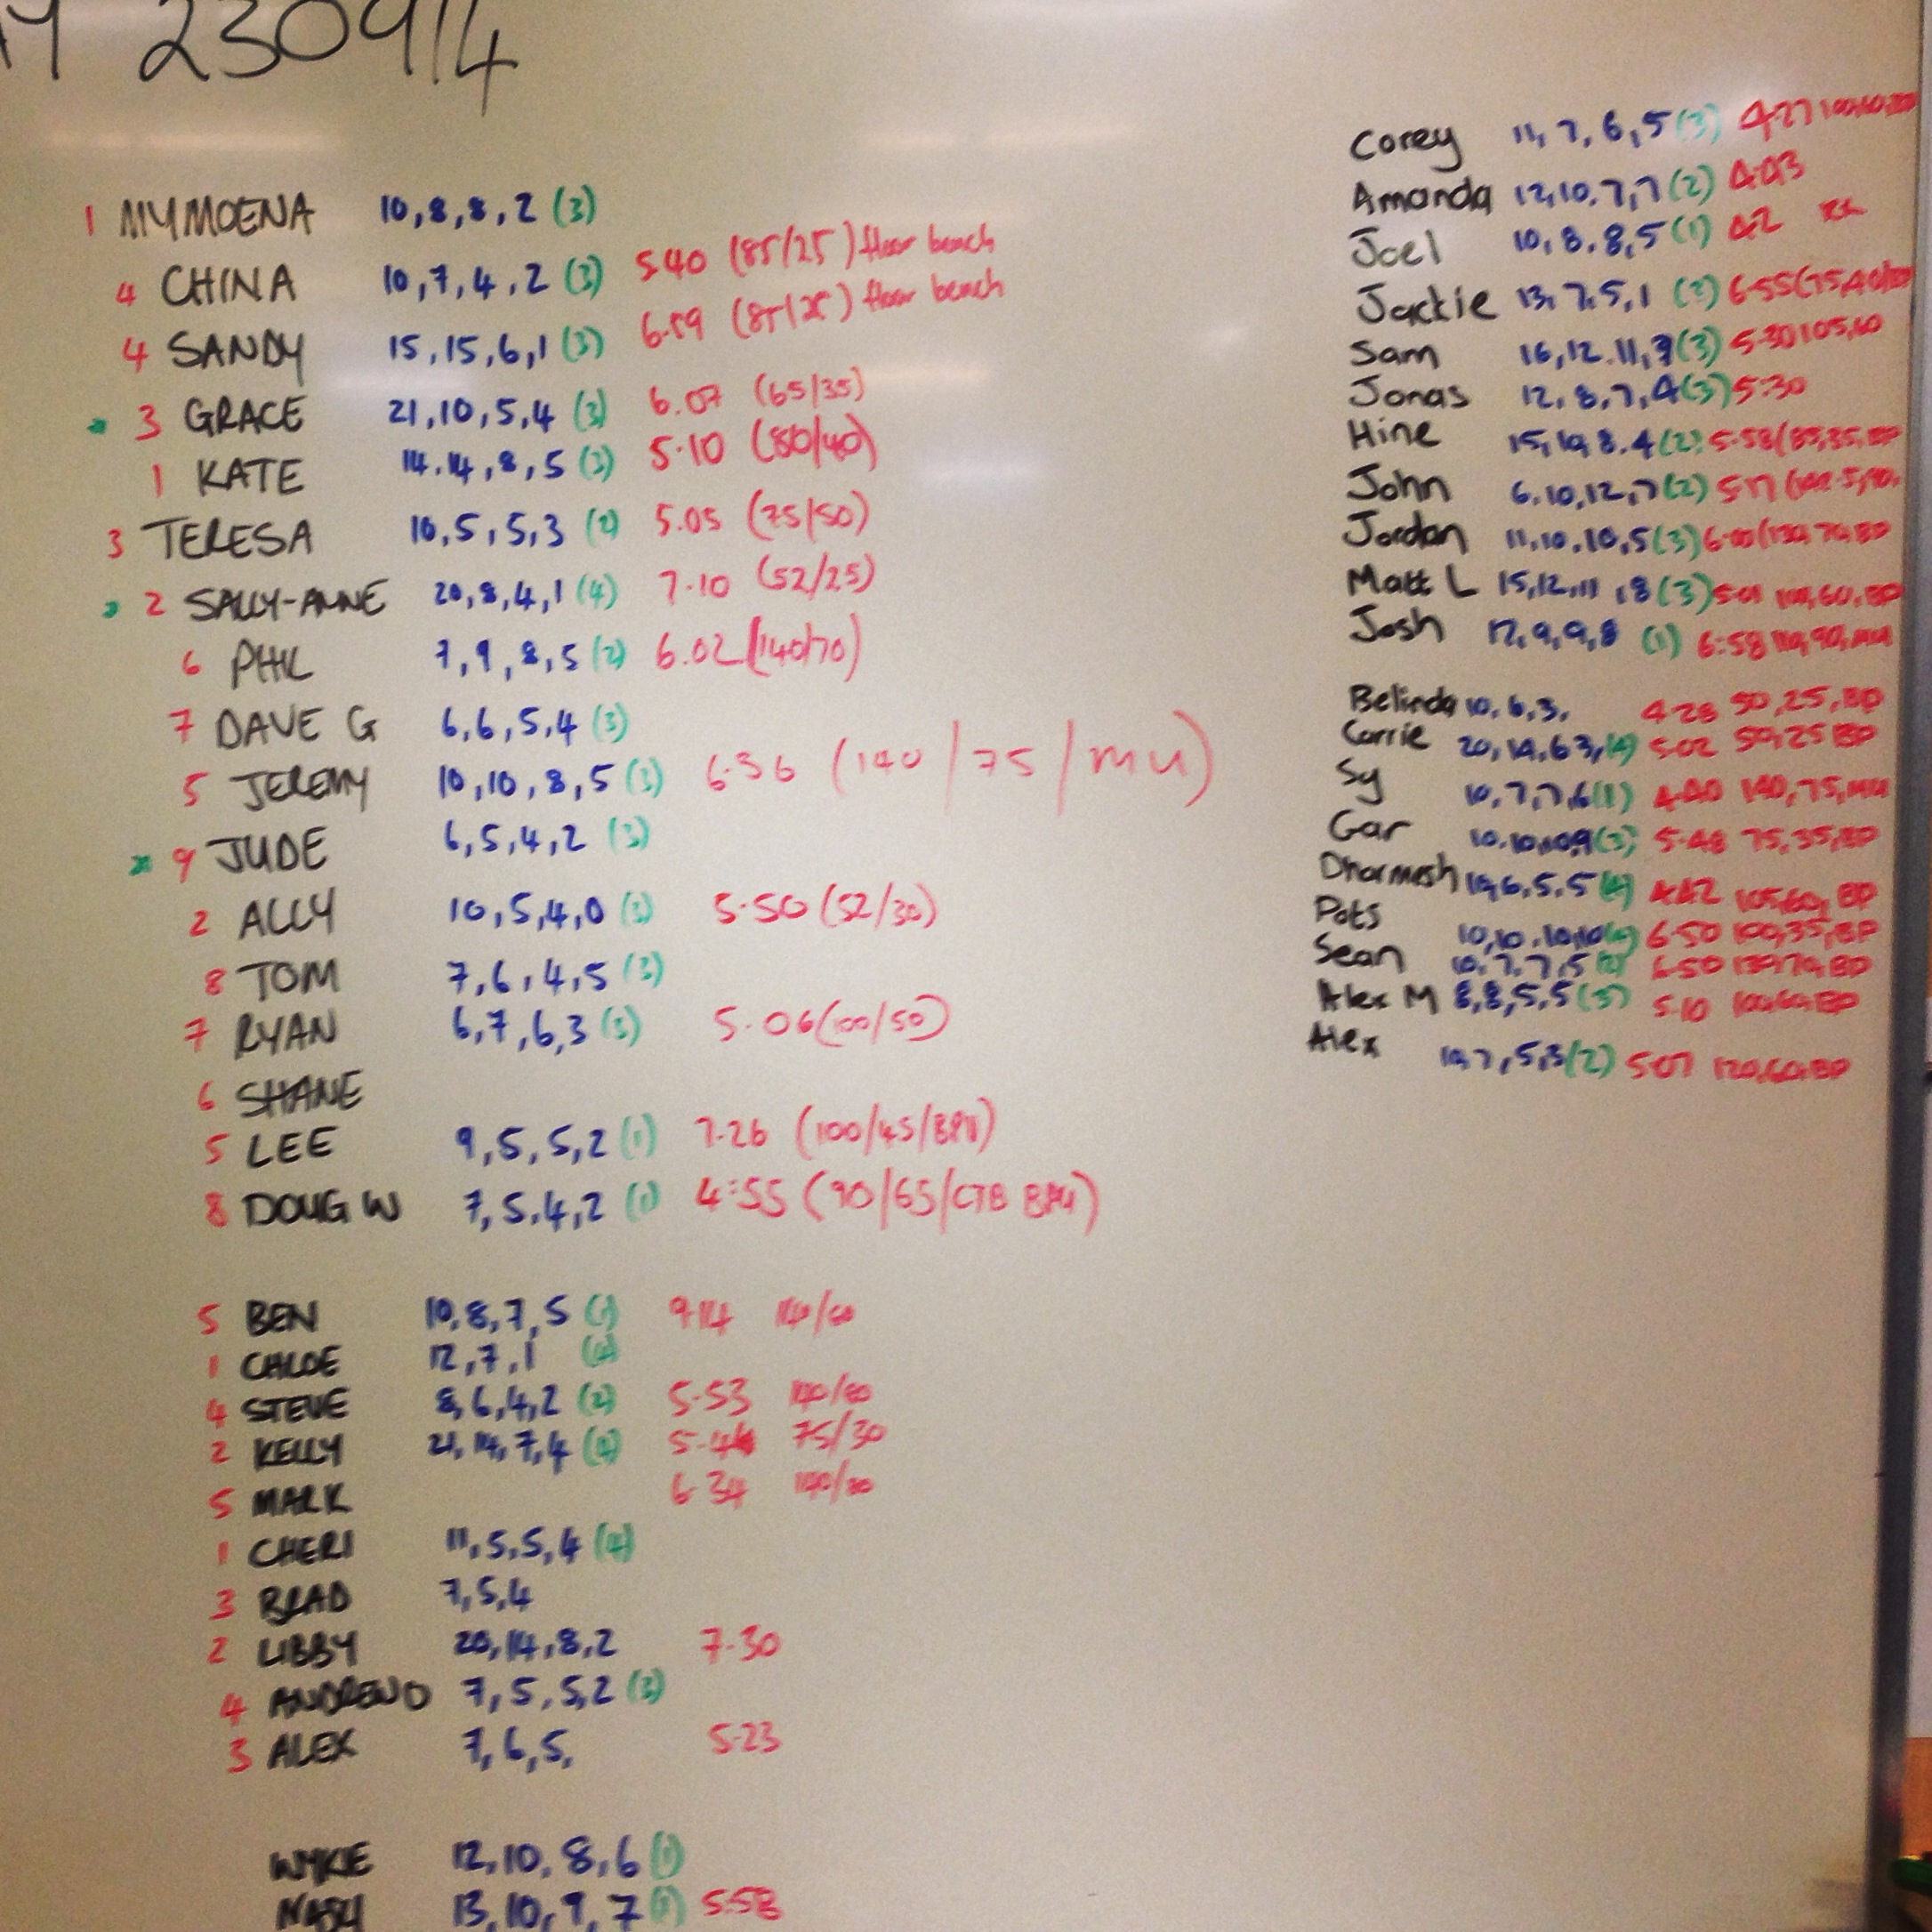 230914
1 MYMOENA 10,8,8,2 (3)
4 CHINA 10,7,4,2 (3) 5.40 (85/25) floor beach
4 SANDY 15,15,6,1 (3) 6.59 (85/25) floor beach
3 GRACE 21,10,5,4 (3) 6.07 (65/35)
1 KATE 14.14,8,5 (3) 5.10 (80/40)
3 TERESA 10,5,5,3 (2) 5.05 (75/50)
2 SALLY-ANNE 20,8,4,1 (4) 7.10 (52/25)
6 PHIL 7,9,8,5 (2) 6.02 (140/70)
7 DAVE G 6,6,5,4 (3)
5 JEREMY 10,10,8,5 (3) 6.36 (140/75/MU)
9 JUDE 6,5,4,2 (3)
2 ALLY 10,5,4,0 (3) 5.50 (52/30)
8 TOM 7,6,4,5 (3)
7 RYAN 6,7,6,3 (3) 5.06 (100/50)
6 SHANE
5 LEE 9,5,5,2 (1) 7.26 (100/45/BPU)
8 DOUG W 7,5,4,2 (1) 4:55 (90/65/CTB BPU)
5 BEN 10,8,7,5 9.14
1 CHLOE 12,7,1
4 STEVE 8,6,4,2 (2) 5.53
2 KELLY 21,14,7,4 75/30
5 MARK 6.34
1 CHERI 11,5,5,4
3 BRAD 7,5,4
2 LIBBY 20,14,8,2 7.30
4 ANDREW D 7,5,5,2 (3)
3 ALEX 7,6,5, 5.23
WYKIE 12,10,8,6
NASH 13,10,9,7 5:58
Corey 11,7,6,5 (3) 4.27
Amanda 12,10,7,7 (2) 4.43
Joel 10,8,8,5 (1)
Jackie 13,7,5,1 6.55
Sam 16,12,11, (3) 5.30 105,60
Jonas 12,8,7,4 (3) 5:30
Hine 5.58
John 6,10,12,7 (2) 5.17
Jordan 11,10,10,5 (3)
Matt L 15,12,11,8 (3) 5.01
Josh 12,9,9,8 (1) 6:58
Belinda 10,6,3, 4.28 50,25,BP
Corrie 5.02 50,25 BP
Sy 10,7,7,6 (1) 4.40 140,75,MU
Gar 5.48 75,35,BP
Dharmesh
Pats 6.50
Sean 6.50
Alex M 8,8,5,5 (3) 5.10
Alex 5.07